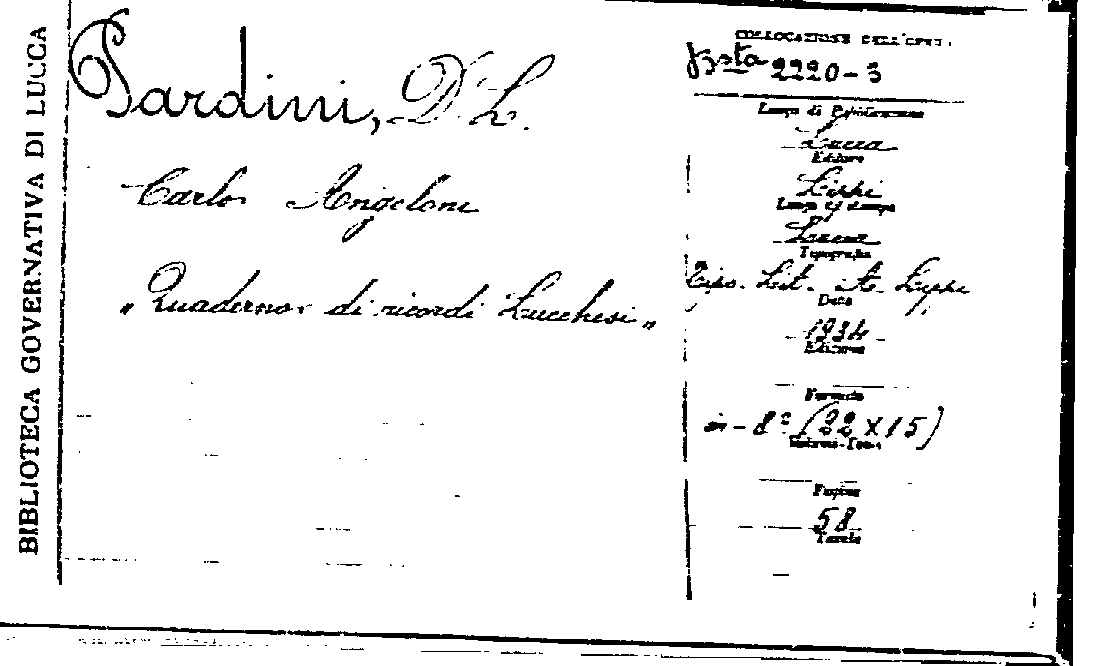 BIBLIOTECA GOVERNATIVA DI LUCCA
Pardini, D. L.
Carlo Angeloni
"Quaderno di ricordi Lucchesi"
COLLOCAZIONE DELL'OPERA
Bsta 2220-3
Luogo di Pubblicazione
Lucca
Editore
Lippi
Luogo di stampa
Lucca
Tipografia
Tipo. Lit. Lippi
Data
1934
Edizione
Formato
in-8° (22 X 15)
Pagine
58
Tavole